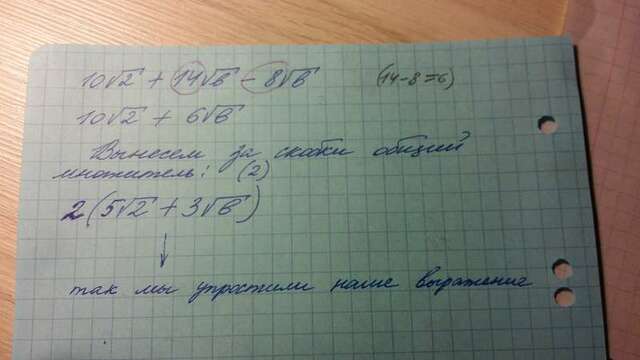 10√2 + 14√в - 8√в (14-8=6)
10√2 + 6√в
Вынесем за скобки общий
множитель: (2)
2(5√2 + 3√в)
↓
так мы упростили наше выражение